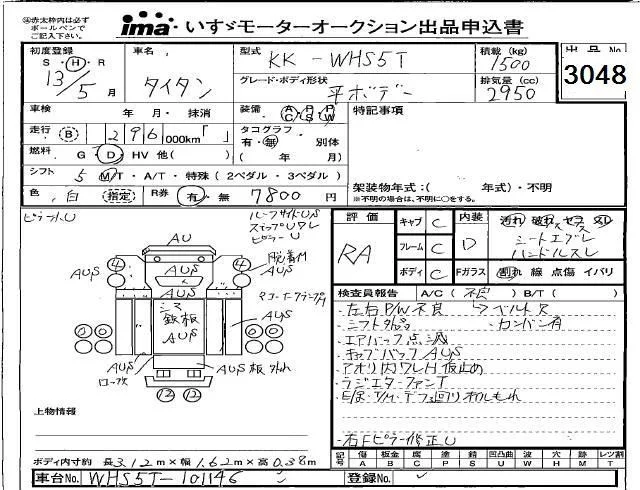 ㊟赤太枠内は必ず
ボールペンで
ご記入下さい。
ima いすゞモーターオークション出品申込書
初度登録 S・H・R 13/5 月
車名 タイタン
型式 KK-WHS5T
積載(kg) 1500
出品No 3048
グレード・ボディ形状 平ボデー
排気量(cc) 2950
車検 年・月・抹消
装備 AC PS PW
特記事項
走行 (B) 296 000km「 」
タコグラフ 有・無 別体
( 年 月)
燃料 G・D・HV 他( )
シフト 5 MT・A/T・特殊(2ペダル・3ペダル)
架装物年式:( 年式)・不明
※不明の場合は、不明に○をする。
色 白 (指定) R券 有・無 7800円
ピラーU
ルーフサイドUS
ステップUワレ
ピラーU
評価 RA
キャブ C
フレーム C
ボディ C
内装 D
汚れ 破れ コゲ スレ
シートエグレ
ハンドルスレ
Fガラス 割れ 線 点傷 イバリ
AU
4 4
AUS AUS
AUS
シマ鉄板
AUS
AUS
AUS
AUS
AUS板
12 12
検査員報告 A/C(不良) B/T( )
・左右P/W不良 →ベルト欠
・シフト外品 ・カンバン有
・エアバッグ点滅
・キャブバックAUS
・アオリ内ワレH板止め
・ラジエターファンT
・E/g・T/M・デフ廻りオイルもれ
・右Fピラー修正U
上物情報
ボディ内寸約 長3.12m×幅1.62m×高0.38m
記号 傷A 板金B 腐C 塗P 錆S 凹凸曲U 波W 穴H 跡M 欠T レツ割
車台No. WHS5T-101146
登録No.